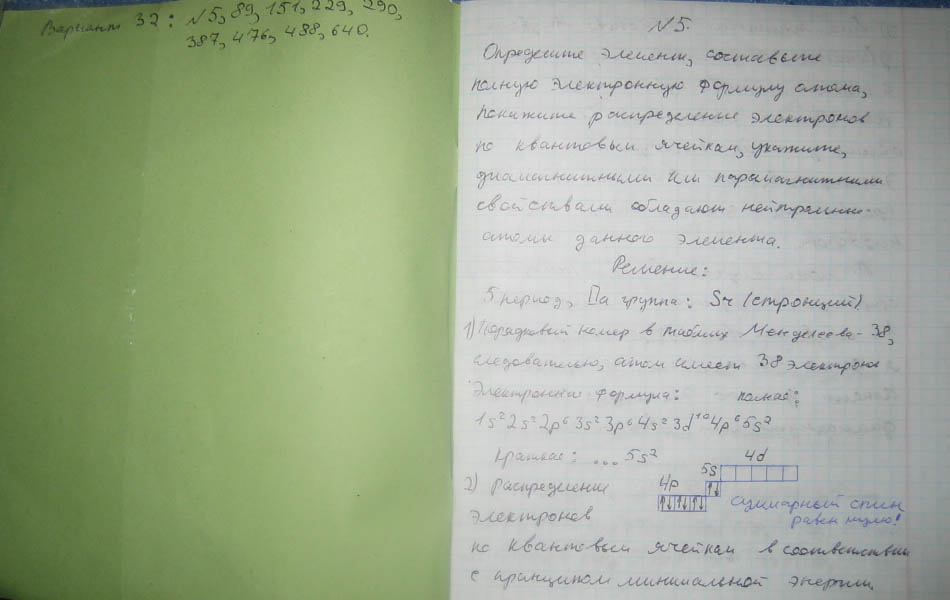 Вариант 32: №5, 89, 151, 229, 290,
387, 476, 488, 640.
№5.
Определите элемент, составьте
полную электронную формулу атома,
покажите распределение электронов
по квантовым ячейкам, укажите,
диамагнитными или парамагнитными
свойствами обладают нейтральные
атомы данного элемента.
Решение:
5 период, IIа группа: Sr (стронций)
1) Порядковый номер в таблице Менделеева - 38,
следовательно, атом имеет 38 электрона
Электронная формула: полная:
1s²2s²2p⁶3s²3p⁶4s²3d¹⁰4p⁶5s²
краткая: ...5s²
4d
5s
4p
2) Распределение
электронов
суммарный спин
равен нулю!
по квантовым ячейкам в соответствии
с принципом минимальной энергии